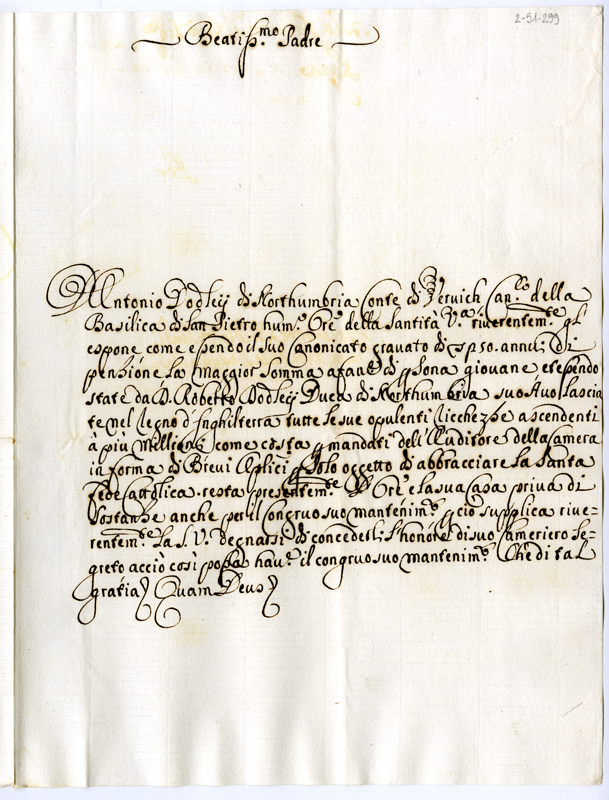 2-51-299
Beatiss.mo Padre
Antonio Dodleij di Northumbria Conte di Vervich Can.co della
Basilica di San Pietro hum.e Ore della Santità V.a riverentem.te gl
espone come essendo il suo Canonicato gravato di 150. annui di
pensione la maggior somma a fav.e di psona giovane et essendo
state da D. Roberto Dodleij Duca di Northumbria suo Avo lascia
te nel Regno d'Inghilterra tutte le sue opulenti ricchezze ascendenti
à più millioni come costa p mandati dell'Auditore della Camera
in forma di Brevi Aplici p solo oggetto di abbracciare la Santa
Fede Cattolica. resta presentem.te l'Ore e la sua Casa priva di
Sostanze anche per il congruo suo mantenim.to p ciò supplica rive-
rentem.te la S. V. degnarsi di concederli l'honore di suo Cameriero Se-
greto acciò così possa hav.e il congruo suo mantenim.to Che di tal
gratia Quam Deus